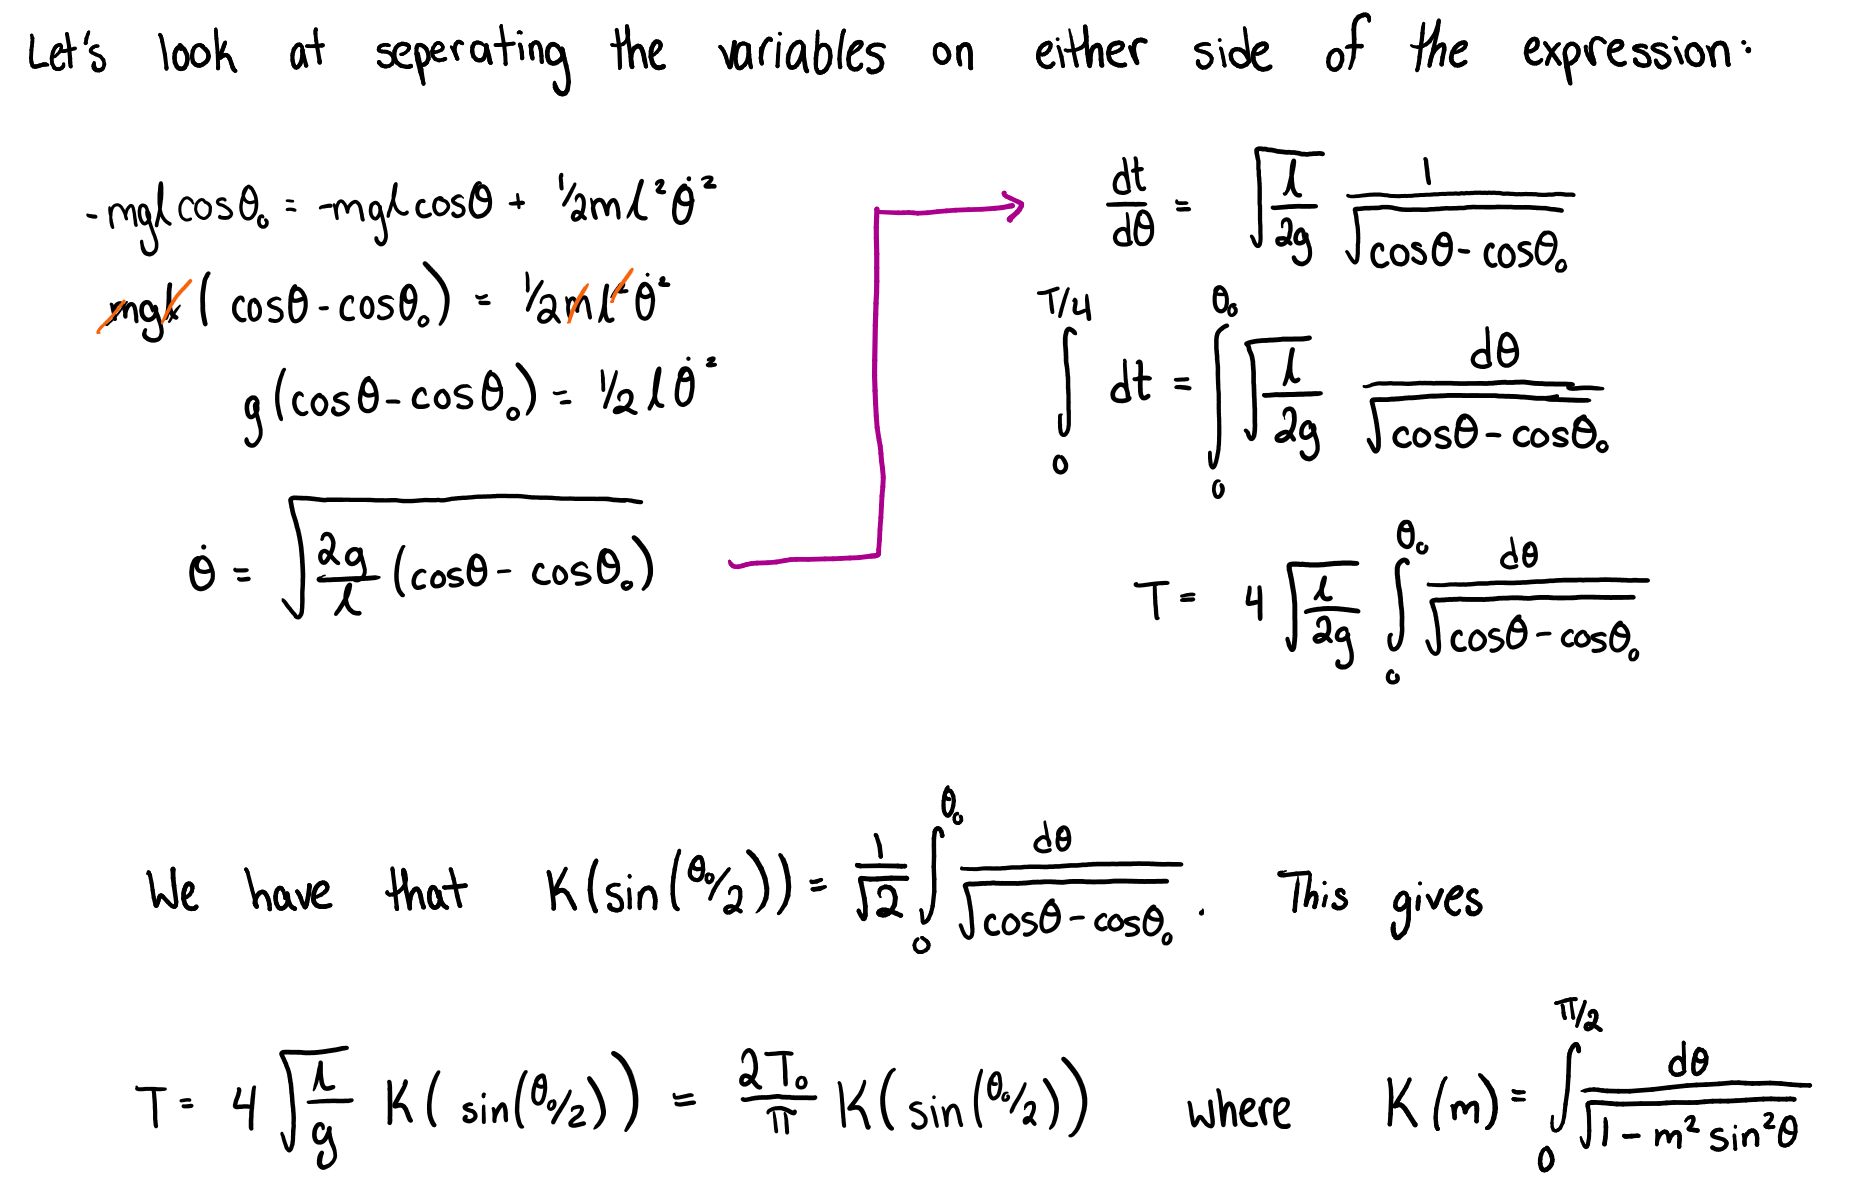 Let's look at seperating the variables on either side of the expression:
-mgl cosθ₀ = -mgl cosθ + ½ml²θ̇²
mgl(cosθ - cosθ₀) = ½ml²θ̇²
g(cosθ - cosθ₀) = ½lθ̇²
θ̇ = √(2g/l (cosθ - cosθ₀))
dt/dθ = √(l/2g) 1/√(cosθ - cosθ₀)
∫₀^(T/4) dt = ∫₀^(θ₀) √(l/2g) dθ/√(cosθ - cosθ₀)
T = 4√(l/2g) ∫₀^(θ₀) dθ/√(cosθ - cosθ₀)
We have that K(sin(θ₀/2)) = 1/√2 ∫₀^(θ₀) dθ/√(cosθ - cosθ₀). This gives
T = 4√(l/g) K(sin(θ₀/2)) = 2T₀/π K(sin(θ₀/2)) where K(m) = ∫₀^(π/2) dθ/√(1 - m² sin²θ)